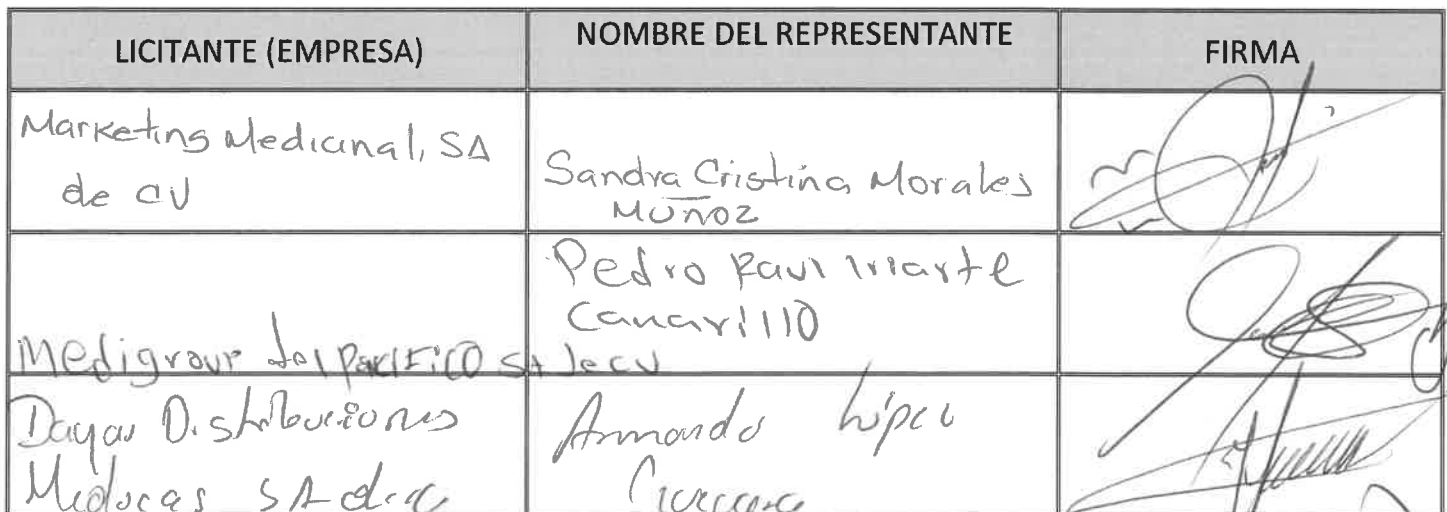 LICITANTE (EMPRESA)
NOMBRE DEL REPRESENTANTE
FIRMA
Marketing Medicinal, SA
de CV
Sandra Cristina Morales
Muñoz
Medigroup del Pacifico SA de CV
Pedro Raul Iriarte
Canarillo
Dayar Distribuciones
Medicas SA de cv
Armando López